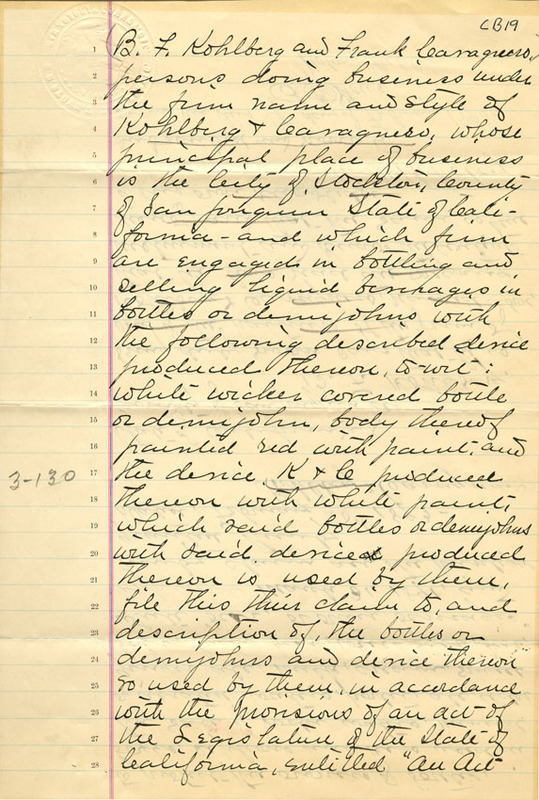 CB19
1 B. F. Kohlberg and Frank Cavagnero,
2 persons doing business under
3 the firm name and style of
4 Kohlberg & Cavagnero, whose
5 principal place of business
6 is the City of Stockton, County
7 of San Joaquin State of Cali-
8 fornia - and which firm
9 are engaged in bottling and
10 selling liquid beverages in
11 bottles or demijohns with
12 the following described device
13 produced thereon, to wit:
14 white wicker covered bottle
15 or demijohn, body thereof
16 painted red with paint, and
17 the device, K & C produced
3-130
18 thereon with white paint,
19 which said bottles or demijohns
20 with said device produced
21 thereon is used by them,
22 file this their claim to, and
23 description of, the bottles or
24 demijohns and device thereon
25 so used by them, in accordance
26 with the provisions of an act of
27 the Legislature of the State of
28 California, entitled "An Act